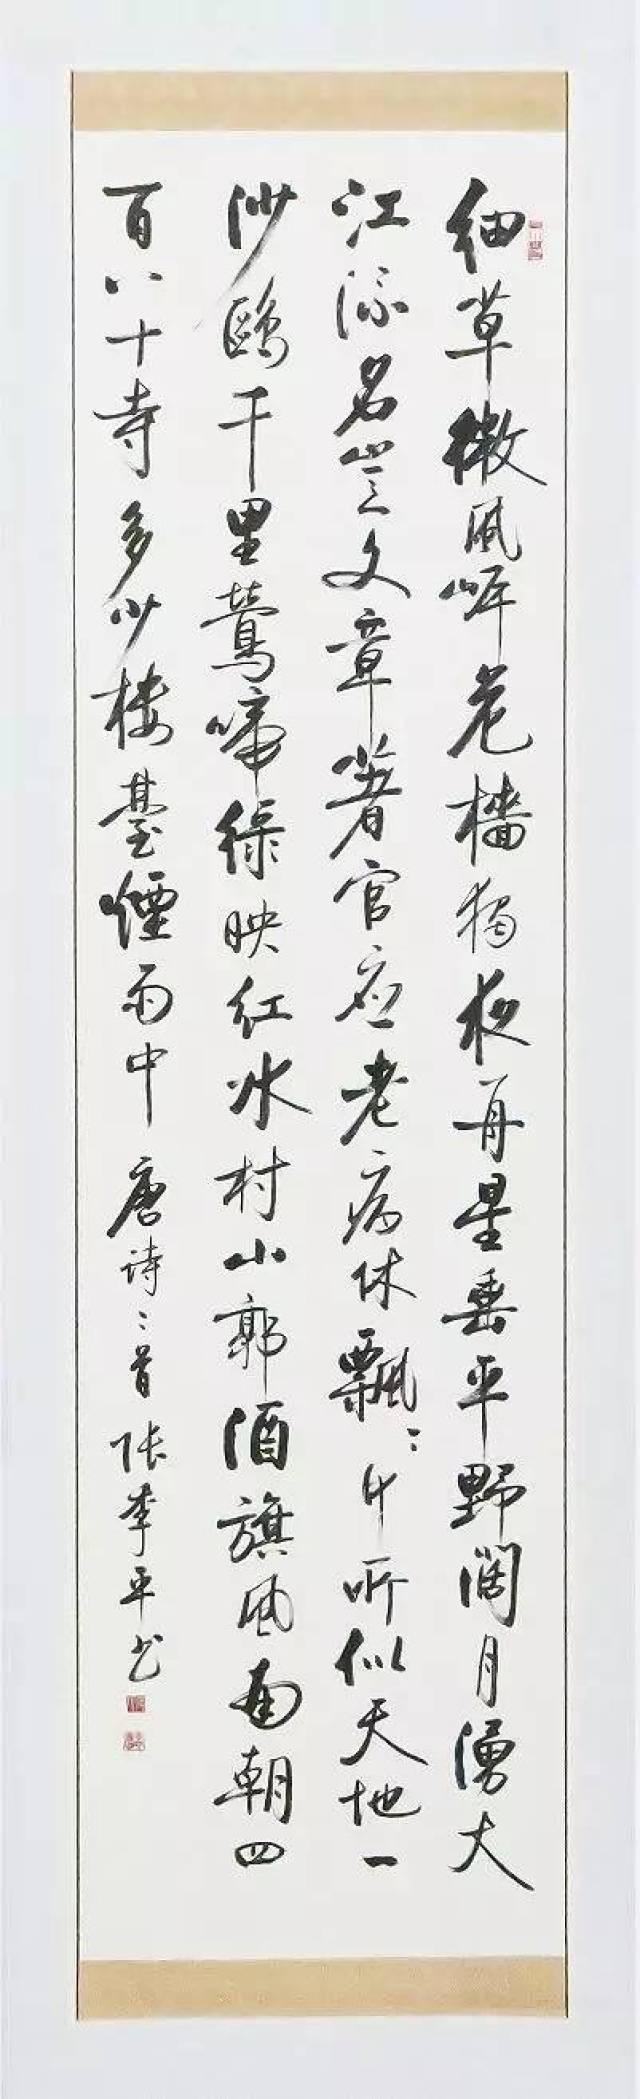 細草微風岸危檣獨夜舟星垂平野闊月湧大
江流名豈文章著官应老病休飄〻何所似天地一
沙鷗千里鶯啼綠映紅水村山郭酒旗風南朝四
百八十寺多少樓臺煙雨中 唐诗二首 张李平书